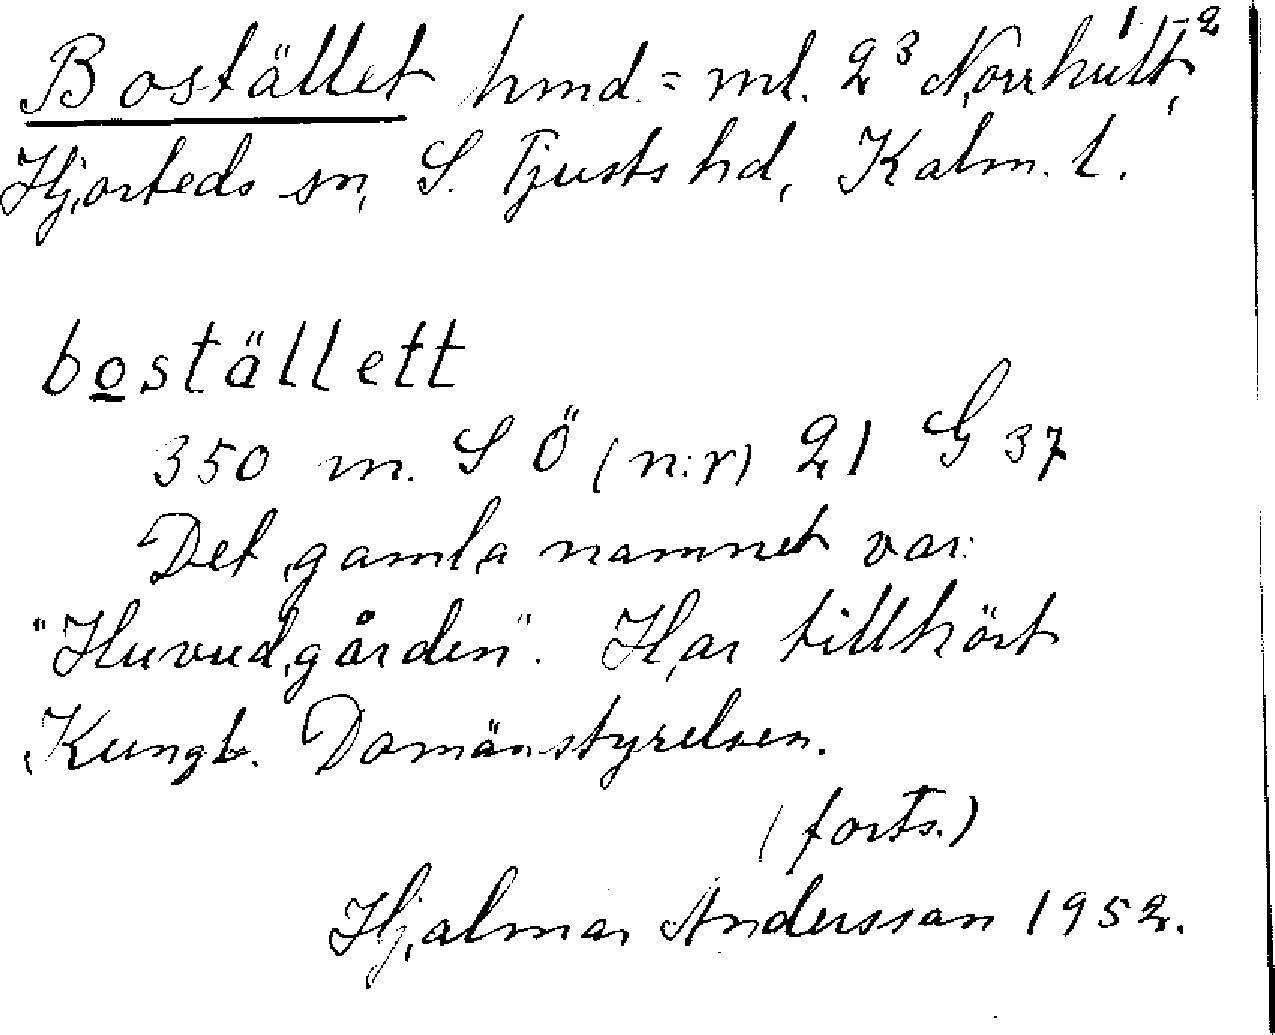 Bostället hmd. = ml. 2³ Norrhult¹⁻²,
Hjorteds sn, S. Tjusts hd, Kalm. l.
bostállett
350 m. S Ö (n:r) 21 G 37
Det gamla namnet var:
"Huvudgården". Har tillhört
Kungl. Domänstyrelsen.
(forts.)
Hjalmar Andersson 1952.